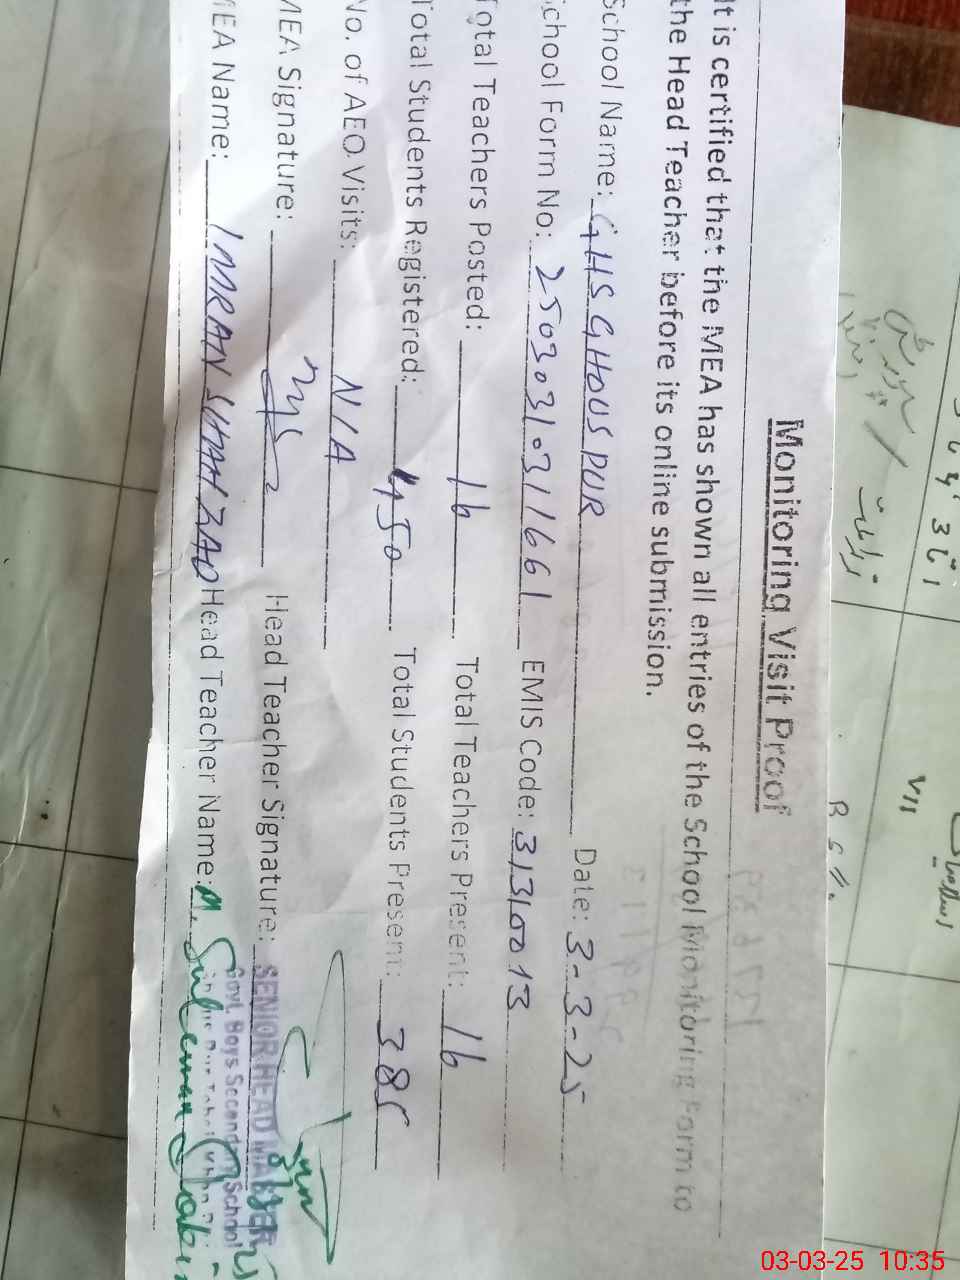 Monitoring Visit Proof
It is certified that the MEA has shown all entries of the School Monitoring Form to
the Head Teacher before its online submission.
School Name: GHS GHOUS PUR Date: 3-3-25
School Form No: 25030310311661 EMIS Code: 31310013
Total Teachers Posted: 16 Total Teachers Present: 16
Total Students Registered: 450 Total Students Present: 385
No. of AEO Visits: N/A
MEA Signature: Head Teacher Signature:
SENIOR HEAD MASTER
Govt. Boys Secondary School
MEA Name: IMRAN SHAHZAD Head Teacher Name: M. Suleman
VII
03-03-25 10:35